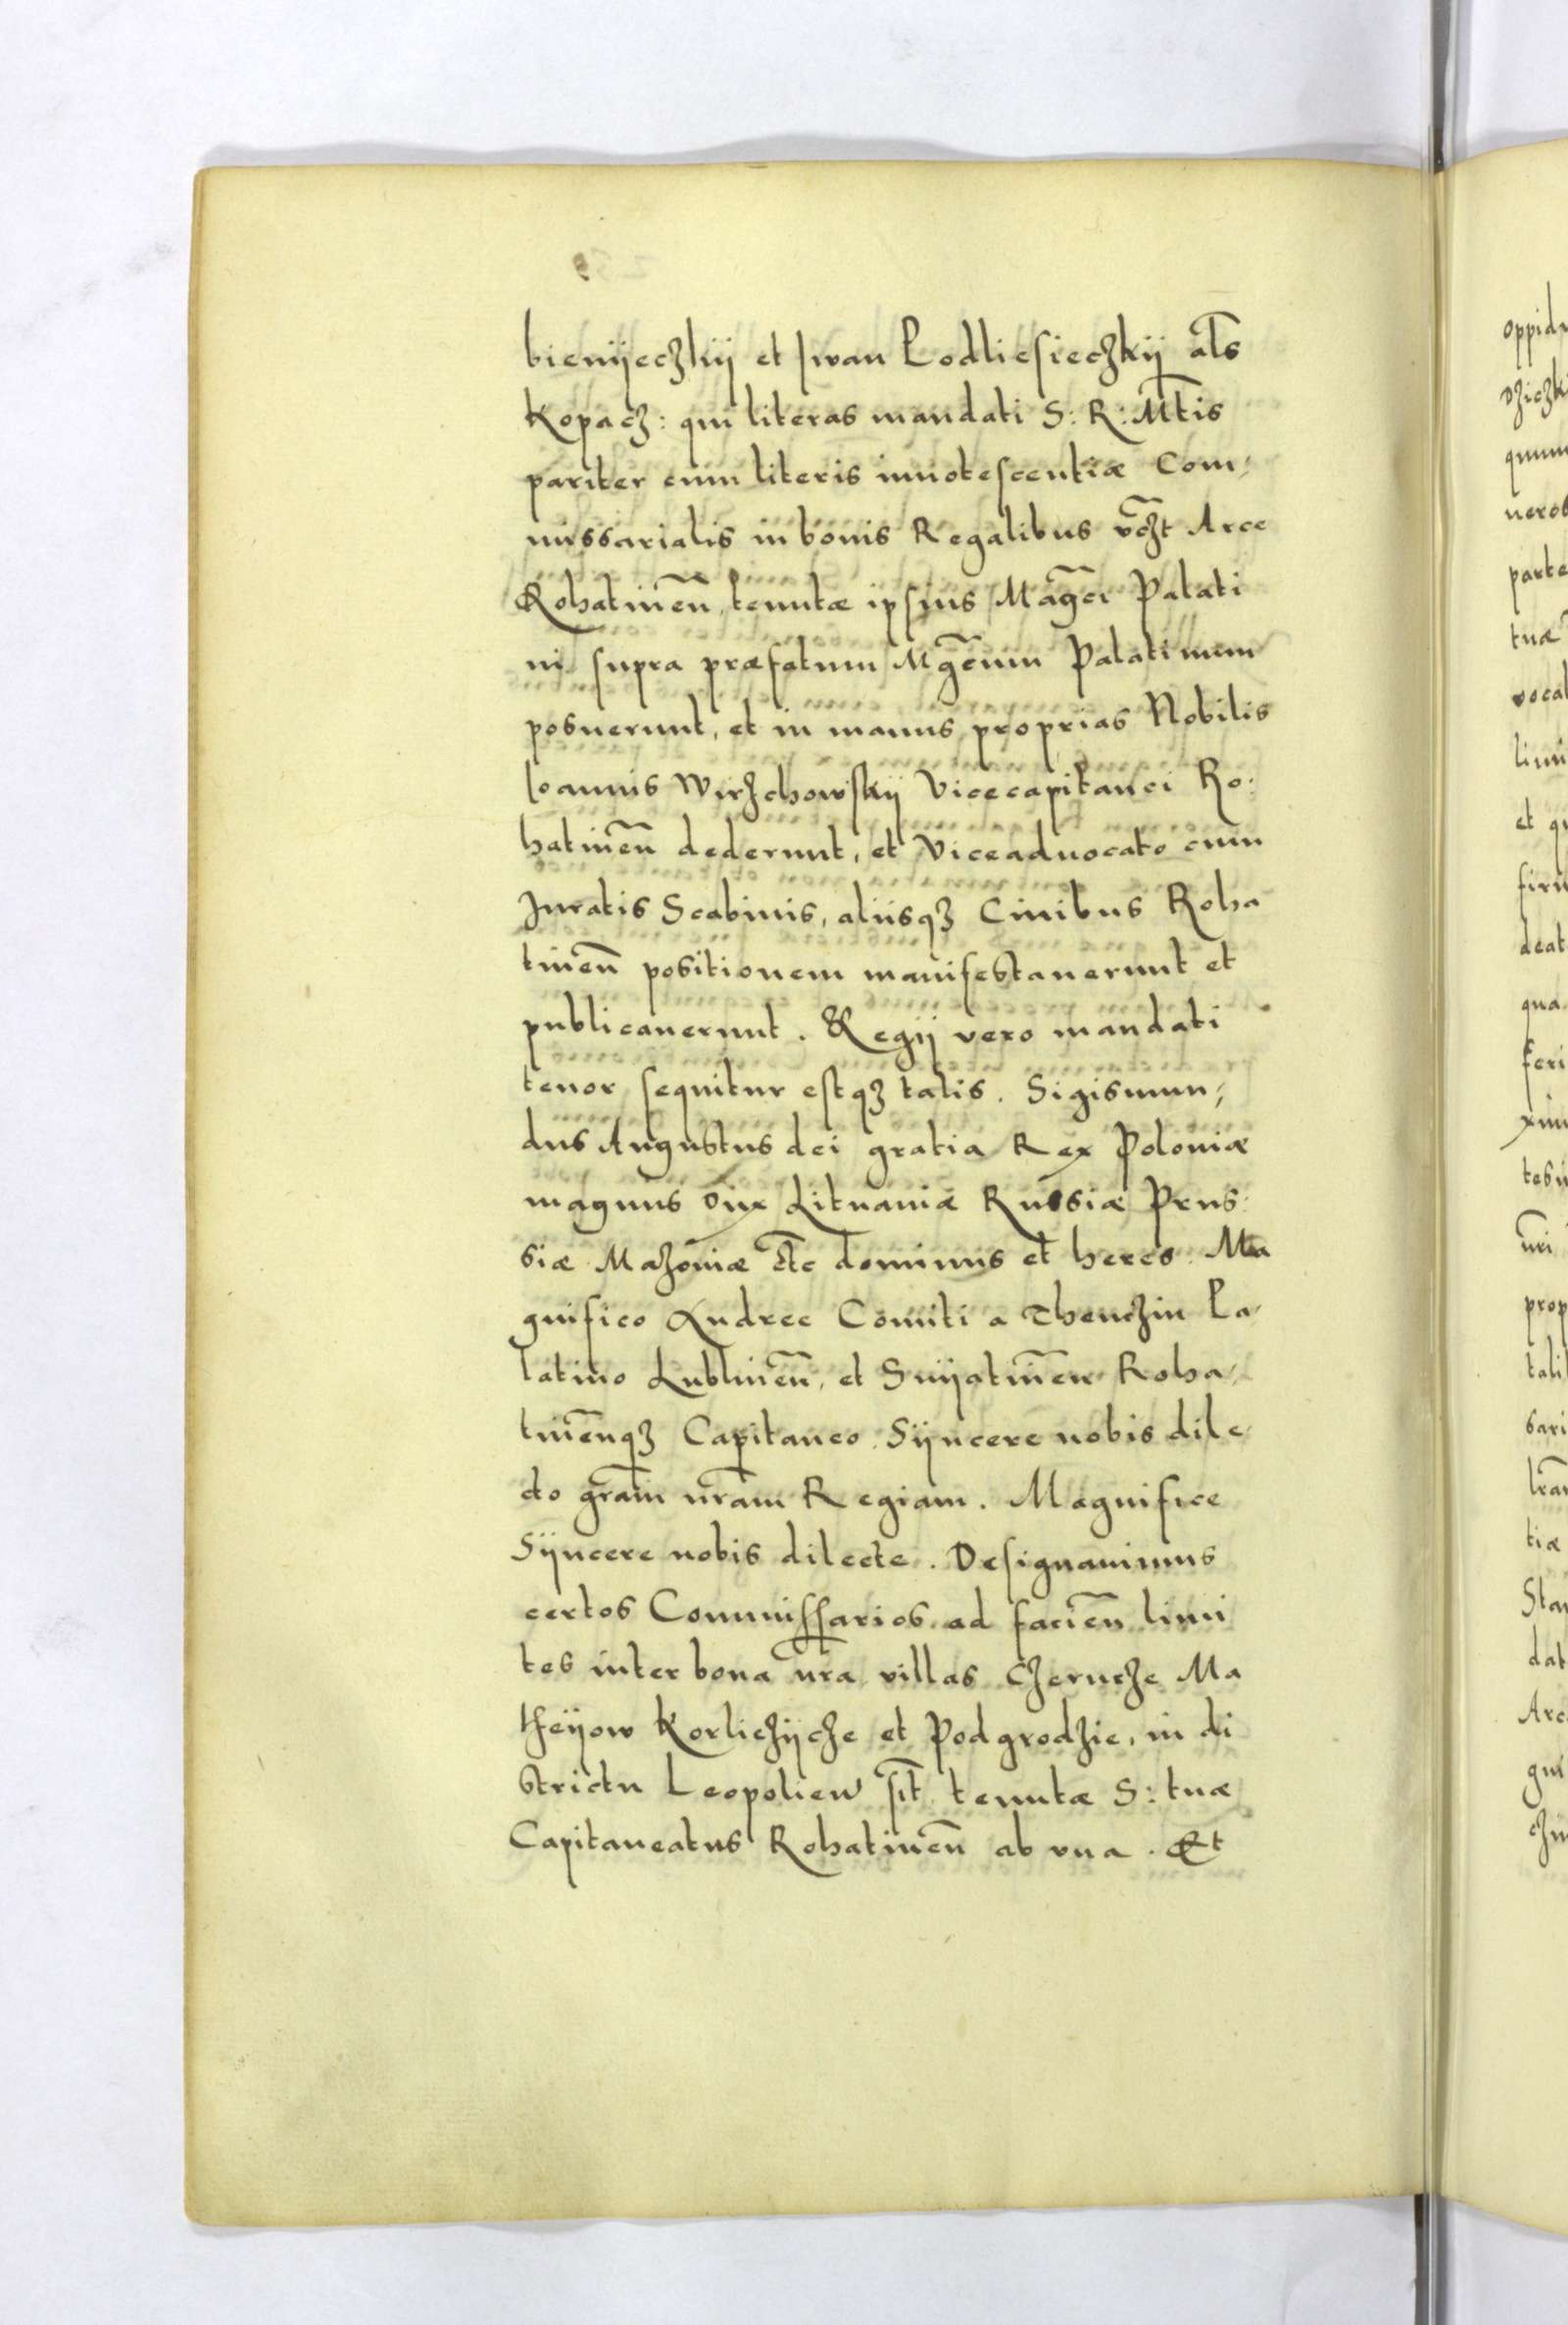 bienijeczkij et Iwan Podliesieczkij als̃
Kopacz: qui literas mandati S: R: Mt̃is
pariter cum literis innotescentiæ Com,
missarialis in bonis Regalibus vcz̃t Arce
Rohatineñ, tenutæ ipsius Mag̃ci Palati
ni supra præfatum Mg̃cum Palatinum
posuerunt, et in manus proprias Nobilis
Ioannis Wirzchowskij Vicecapitanei Ro:
hatineñ dederunt, et Viceaduocato cum
Juratis Scabinis, aliisqz Ciuibus Roha
tineñ positionem manifestauerunt et
publicauerunt. Regij vero mandati
tenor sequitur estqz talis. Sigismun,
dus Augustus dei gratia Rex Poloniæ
magnus Dux Lituaniæ Russiæ Prus:
siæ Mazoniæ etc̃ dominus et heres. Ma
gnifico Andree Comiti a Thenczin Pa,
latino Lublineñ, et Snijatineñ Roha,
tineñqz Capitaneo. Sijncere nobis dile
cto gr̃am nr̃am Regiam. Magnifice
Sijncere nobis dilecte. Designauimus
certos Commissarios ad facieñ limi
tes inter bona nr̃a villas Czerncze Ma
theijow Korliczijcze et Podgrodzie, in di
strictu Leopolien sit̃ tenutæ S: tuæ
Capitaneatus Rohatineñ ab vna. Et
oppid
dziczk
quum
neros
parte
tuæ
vocal
limi
et q
firm
deat
qua
feri
xim
tes
nr̃i
prop
tali
sari
lr̃a
tiæ
Sta
dat
Arc
gni